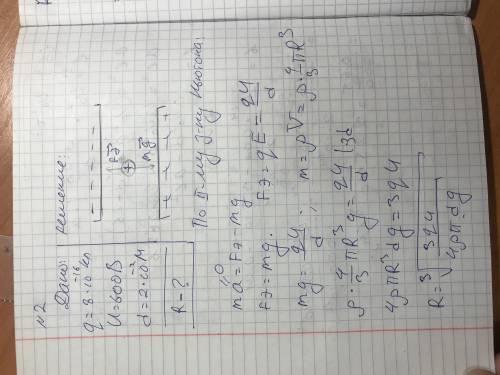 №2
Дано:
q = 8·10⁻¹⁶ Кл
U = 600 В
d = 2·10⁻² м
R - ?
Решение:
- - - - - -
Fэ
+
mg
+ + + + +
По II-му з-ну Ньютона:
ma = Fэ - mg
0
Fэ = mg. Fэ = qE = qU/d
mg = qU/d ; m = ρV = ρ·4/3 πR³
ρ·4/3 πR³g = qU/d |3d
4ρπR³dg = 3qU
R = ³√(3qU/4ρπdg)